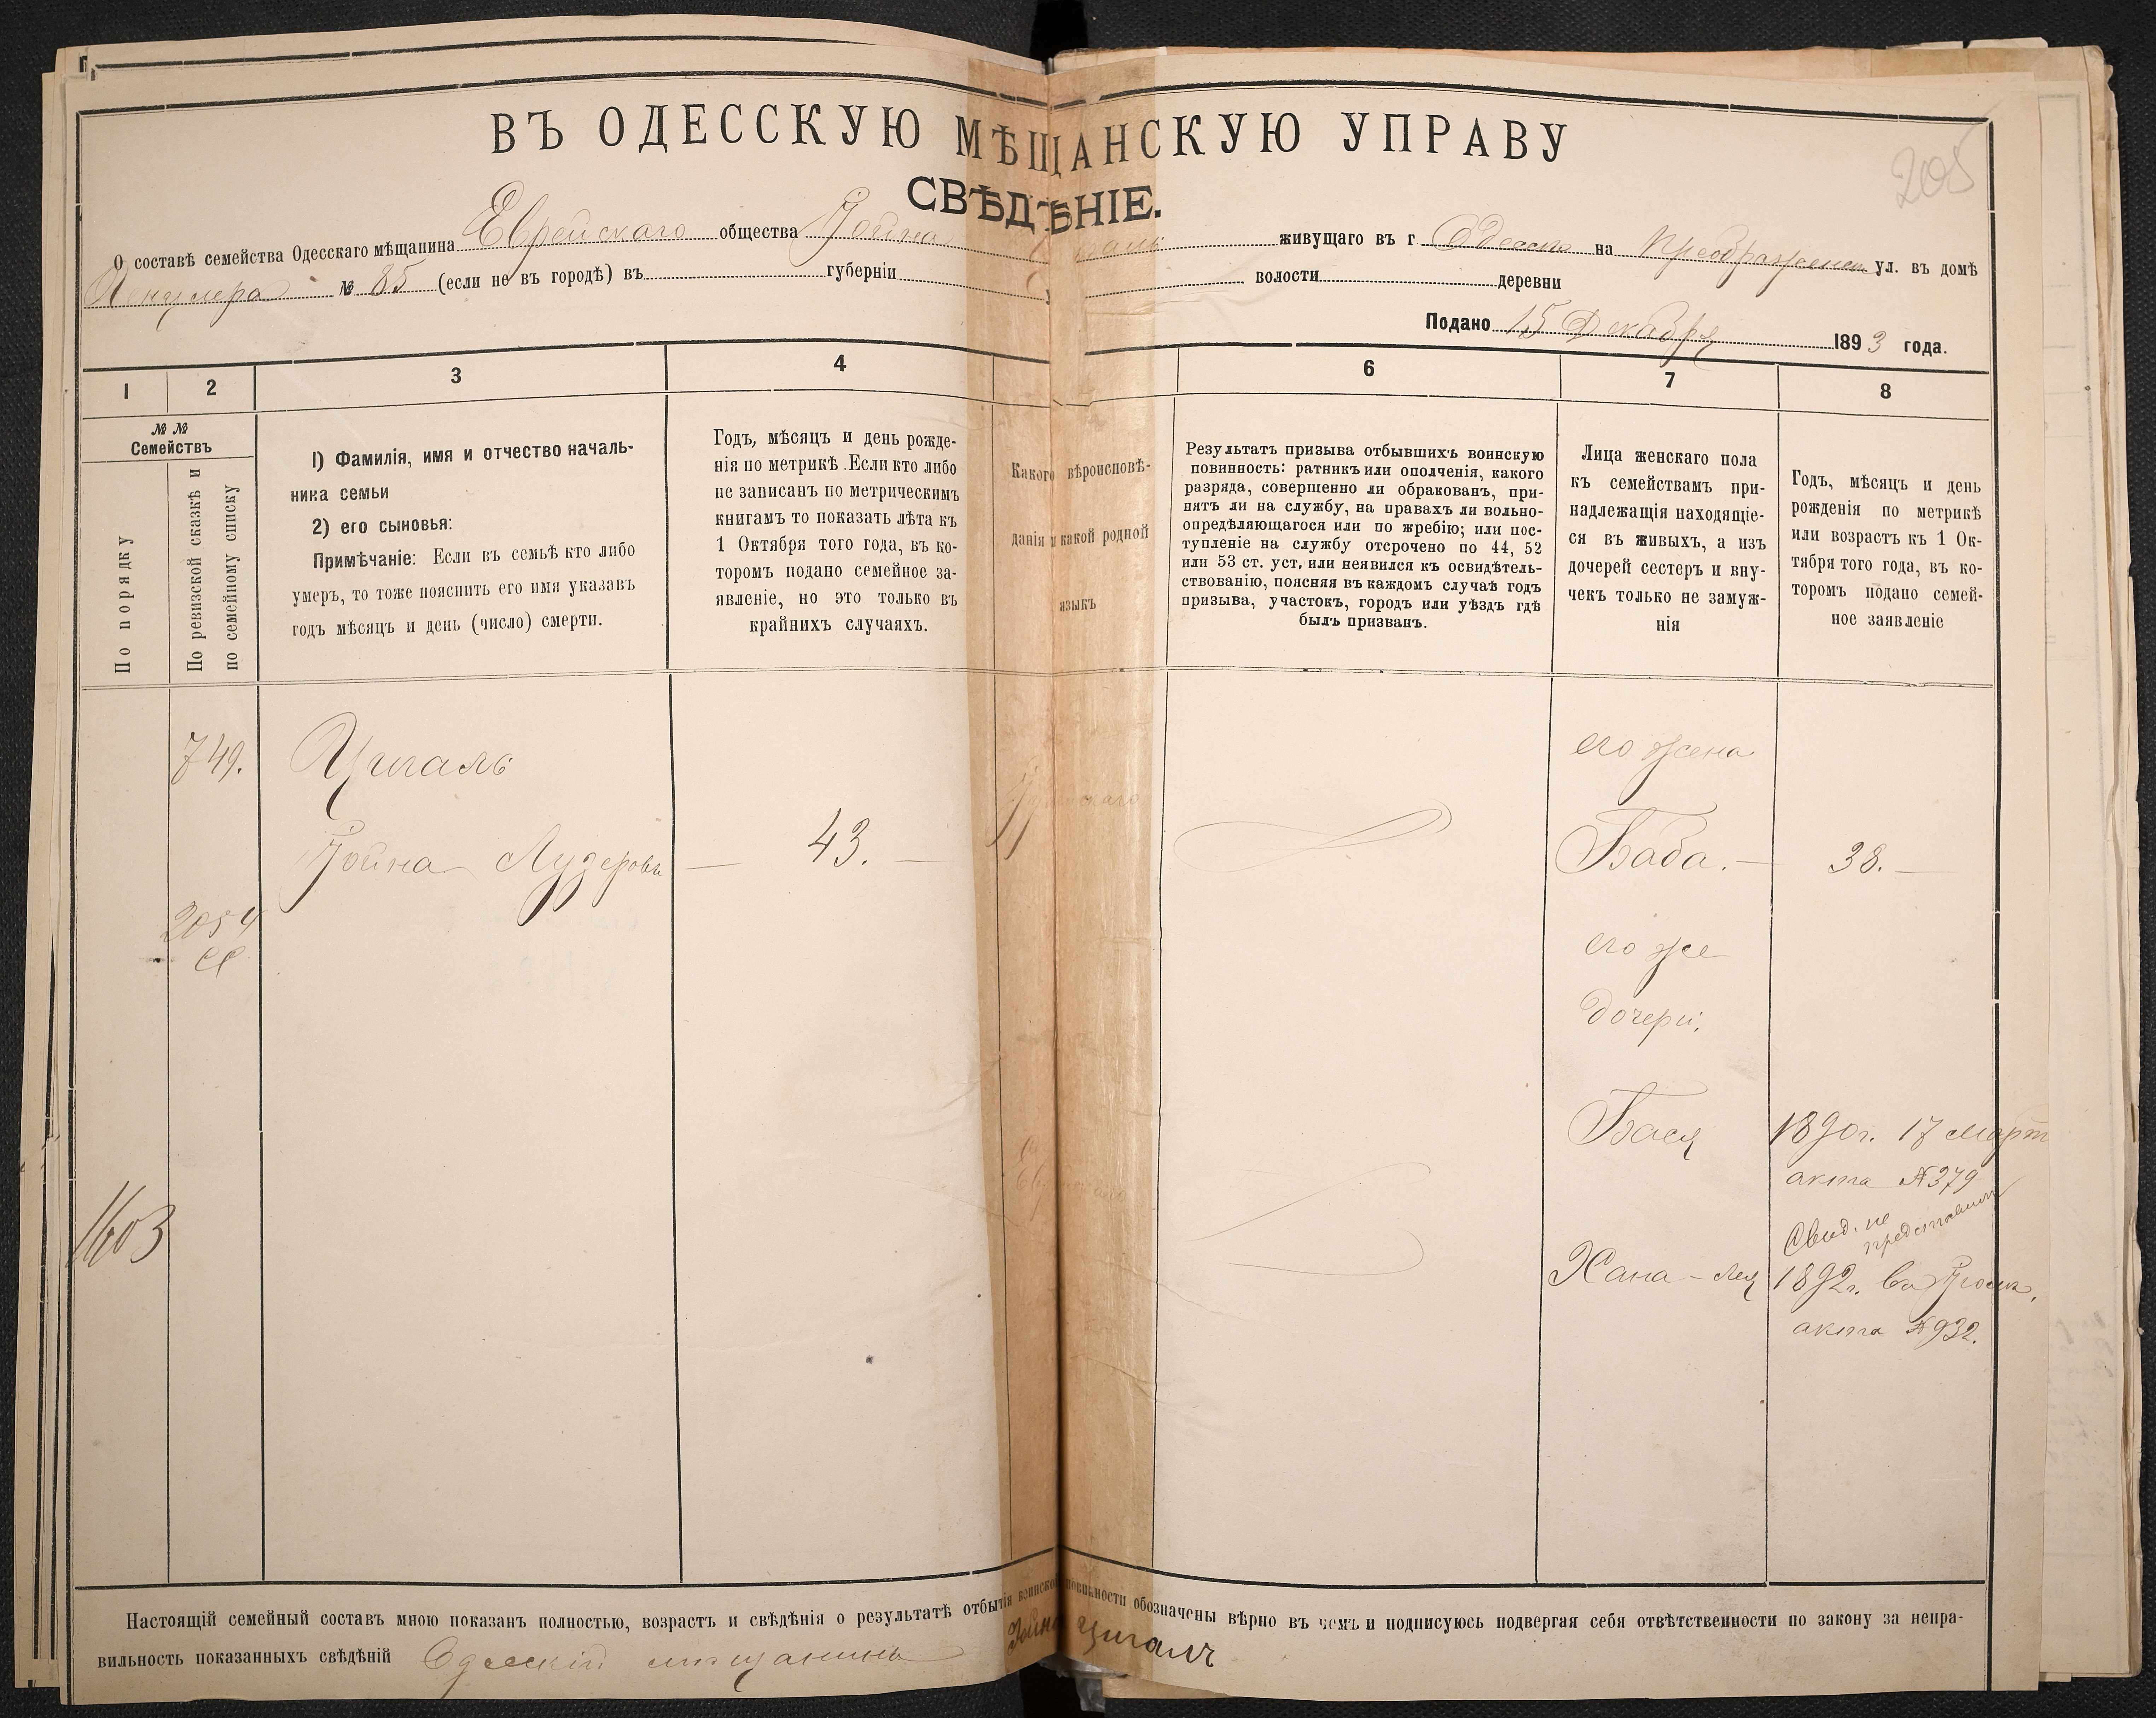 ВЪ ОДЕССКУЮ МѢЩАНСКУЮ УПРАВУ
СВѢДѢНІЕ.
205
О составѣ семейства Одесскаго мѣщанина Еврейскаго общества Іойна живущаго въ г Одессѣ на Преображенск ул. въ домѣ
№ 85 (если не въ городѣ) въ губерніи волости деревни
Подано 15 Декабря 1893 года.
1 2 3 4 6 7 8
№ №
Семействъ
По порядку
По ревизской сказкѣ и
по семейному списку
1) Фамилія, имя и отчество началь-
ника семьи
2) его сыновья:
Примѣчаніе: Если въ семьѣ кто либо
умеръ, то тоже пояснить его имя указавъ
годъ мѣсяцъ и день (число) смерти.
Годъ, мѣсяцъ и день рожде-
нія по метрикѣ. Если кто либо
не записанъ по метрическимъ
книгамъ то показать лѣта къ
1 Октября того года, въ ко-
торомъ подано семейное за-
явленіе, но это только въ
крайнихъ случаяхъ.
Какого вѣроисповѣ-
данія и какой родной
языкъ
Результатъ призыва отбывшихъ воинскую
повинность: ратникъ или ополченія, какого
разряда, совершенно ли обракованъ, при-
нятъ ли на службу, на правахъ ли вольно-
опредѣляющагося или по жребію; или пос-
тупленіе на службу отсрочено по 44, 52
или 53 ст. уст, или неявился къ освидѣтель-
ствованію, поясняя въ каждомъ случаѣ годъ
призыва, участокъ, городъ или уѣздъ гдѣ
былъ призванъ.
Лица женскаго пола
къ семействамъ при-
надлежащія находящіе-
ся въ живыхъ, а изъ
дочерей сестеръ и вну-
чекъ только не замуж-
нія
Годъ, мѣсяцъ и день
рожденія по метрикѣ
или возрастъ къ 1 Ок-
тября того года, въ ко-
торомъ подано семей-
ное заявленіе
749. Цигаль его жена
Іойна Лузеровъ — 43. — Баба. — 38. —
2054
его же
дочери:
Бася 1890г. 17 Март
акта №379
Свид. не
представилъ
1603
Хана-Лея 1892г. Іюля,
акта №932.
Настоящій семейный составъ мною показанъ полностью, возрастъ и свѣдѣнія о результатѣ отбытія воинской повинности обозначены вѣрно въ чемъ и подписуюсь подвергая себя отвѣтственности по закону за непра-
вильность показанныхъ свѣдѣній Одесскій мѣщанинъ Іойна Цигалъ